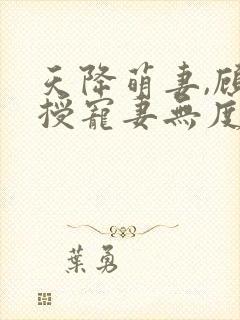 天降萌妻,顾
授寵妻無度
葉勇